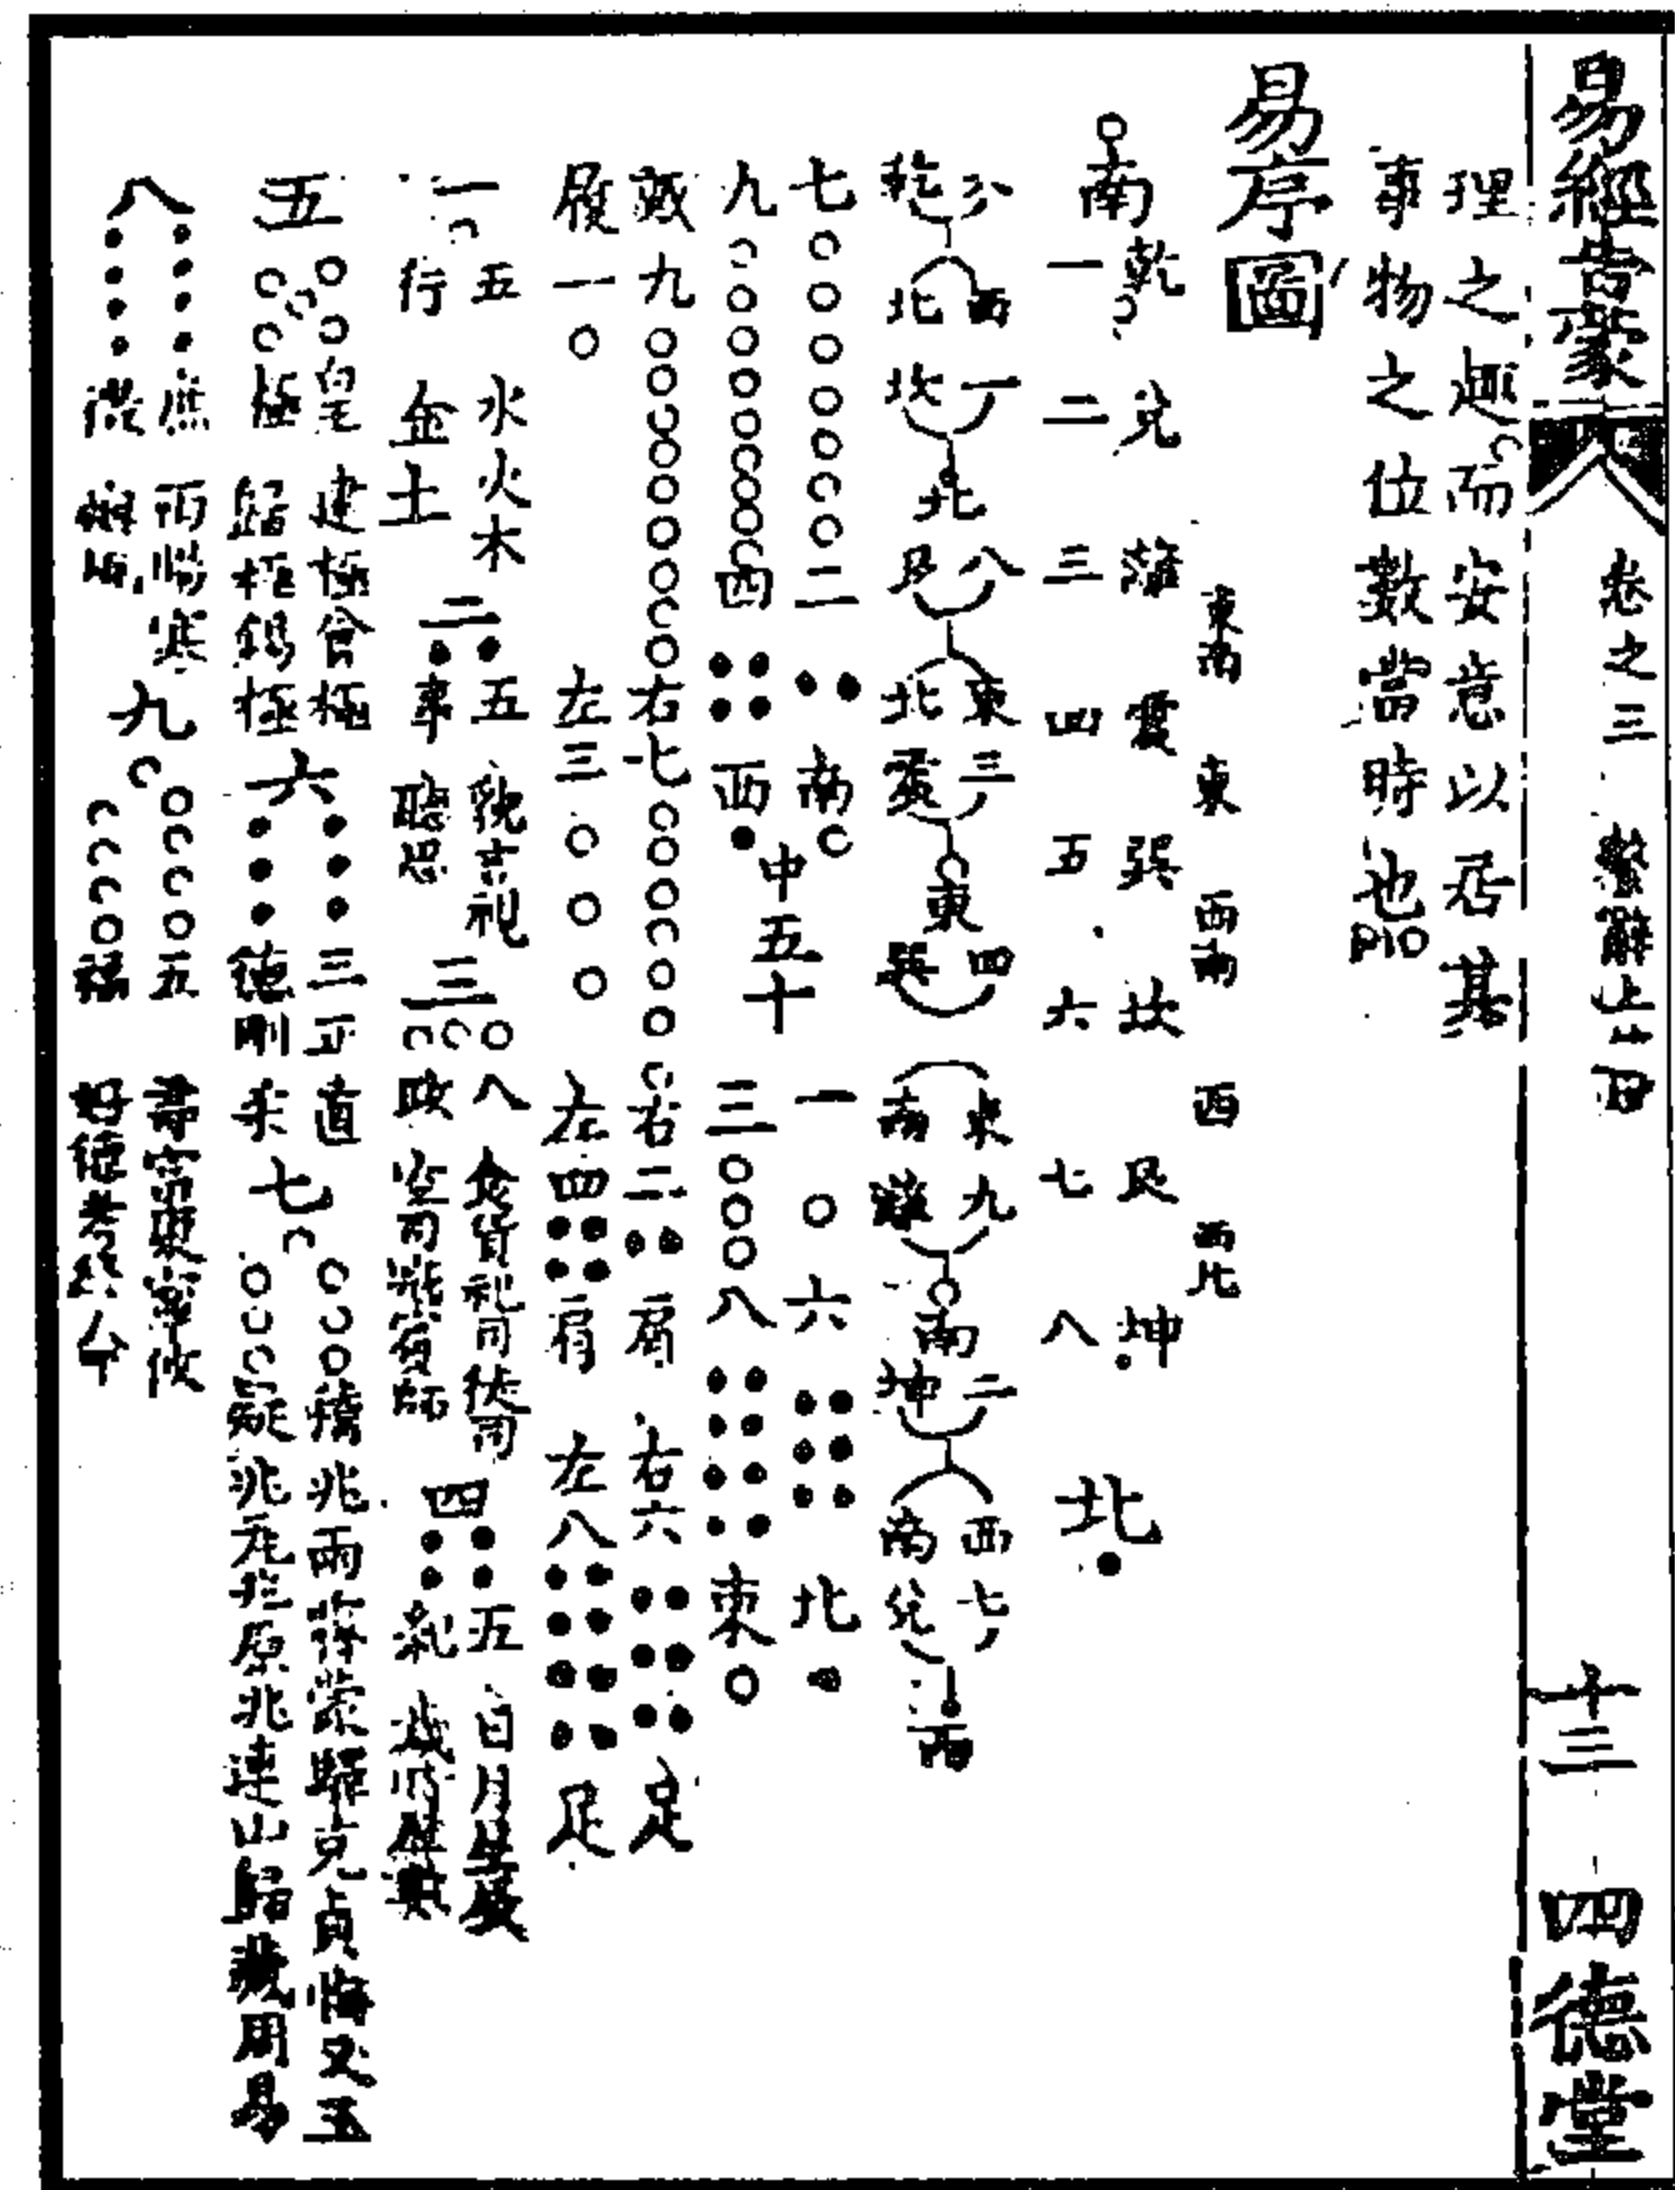 易經旨蒙 卷之三 繫辭上 十三 四德堂
理之趣而安意以居其
事物之位數當時也
易序圖
東南 東 西南 西 西北
乾 兌 離 震 巽 坎 艮 坤
南 一 二 三 四 五 六 七 八 北
六 西一 八 東三 四 東九 二 西七
乾 北坎 北 艮 北震 東 巽 南離 南 坤 南兌 西
七 二 南 一 六 北
中五十
九 四 西 三 八 東
戴九 右七 右二 肩 右六 足
履一 左三 左四 肩 左八 足
一 五行 水火木金土
二 五事 貌言視聽思
三 八政 食貨祀司徒司空司寇賓師
四 五紀 歲月日星辰曆數
五 皇極 建極會極歸極錫極
六 三德 正直剛柔
七 稽疑 兆雨霽蒙驛克貞悔又玉兆瓦兆原兆連山歸藏周易
八 庶徵 雨暘寒燠風
九 五福 壽富康寧攸好德考終命